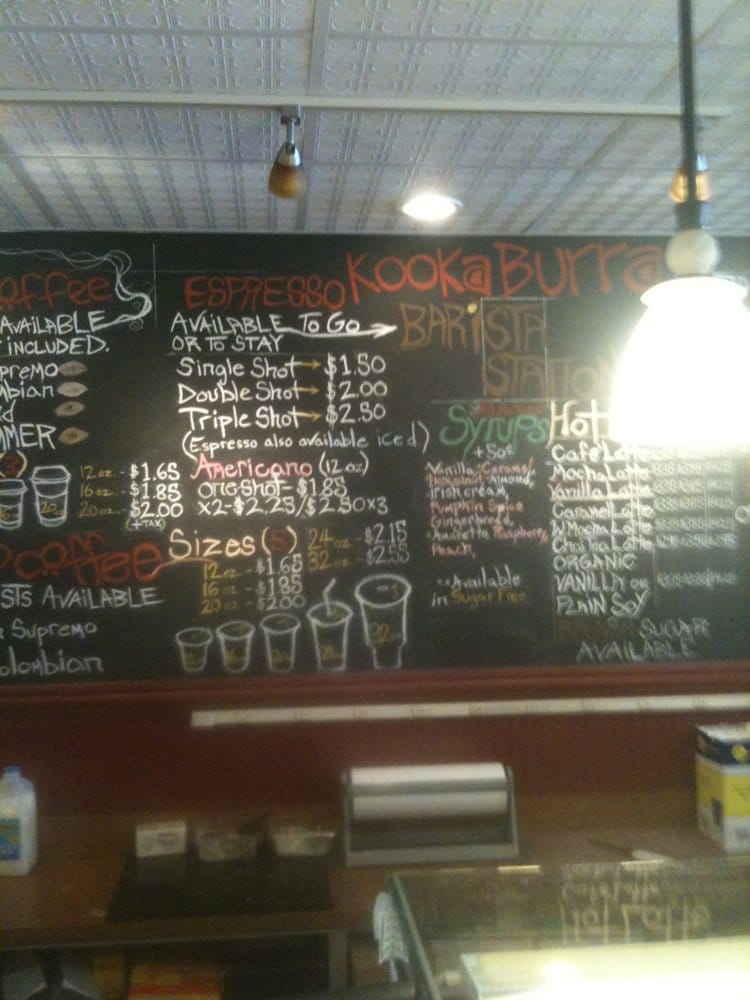 offee
AVAILABLE
INCLUDED.
premo
mbian
MMER
12 oz - $1.65
16 oz - $1.85
20 oz - $2.00
(+TAX)
coffee
STS AVAILABLE
Supremo
olombian
ESPRESSO
AVAILABLE TO GO
OR TO STAY
Single Shot $1.50
Double Shot $2.00
Triple Shot $2.50
(Espresso also available iced)
Americano (12 oz)
ONE SHOT - $1.85
x2 - $2.25/$2.50 x3
Sizes (5)
12 oz - $1.65
16 oz - $1.85
20 oz - $2.00
24 oz - $2.15
32 oz - $2.55
KOOKABURRA
BARISTA
STATION
SYRUPS
+50¢
Vanilla, Caramel,
Hazelnut, Almond,
Irish cream,
Pumpkin Spice
Gingerbread,
Amaretto Raspberry,
Peach,
**Available
in Sugar Free
Hot
Café Latte
Mocha Latte
Vanilla Latte
Caramel Latte
W Mocha Latte
Chai Tea Latte
ORGANIC
VANILLA OR
PLAIN SOY
SUGAR
AVAILABLE